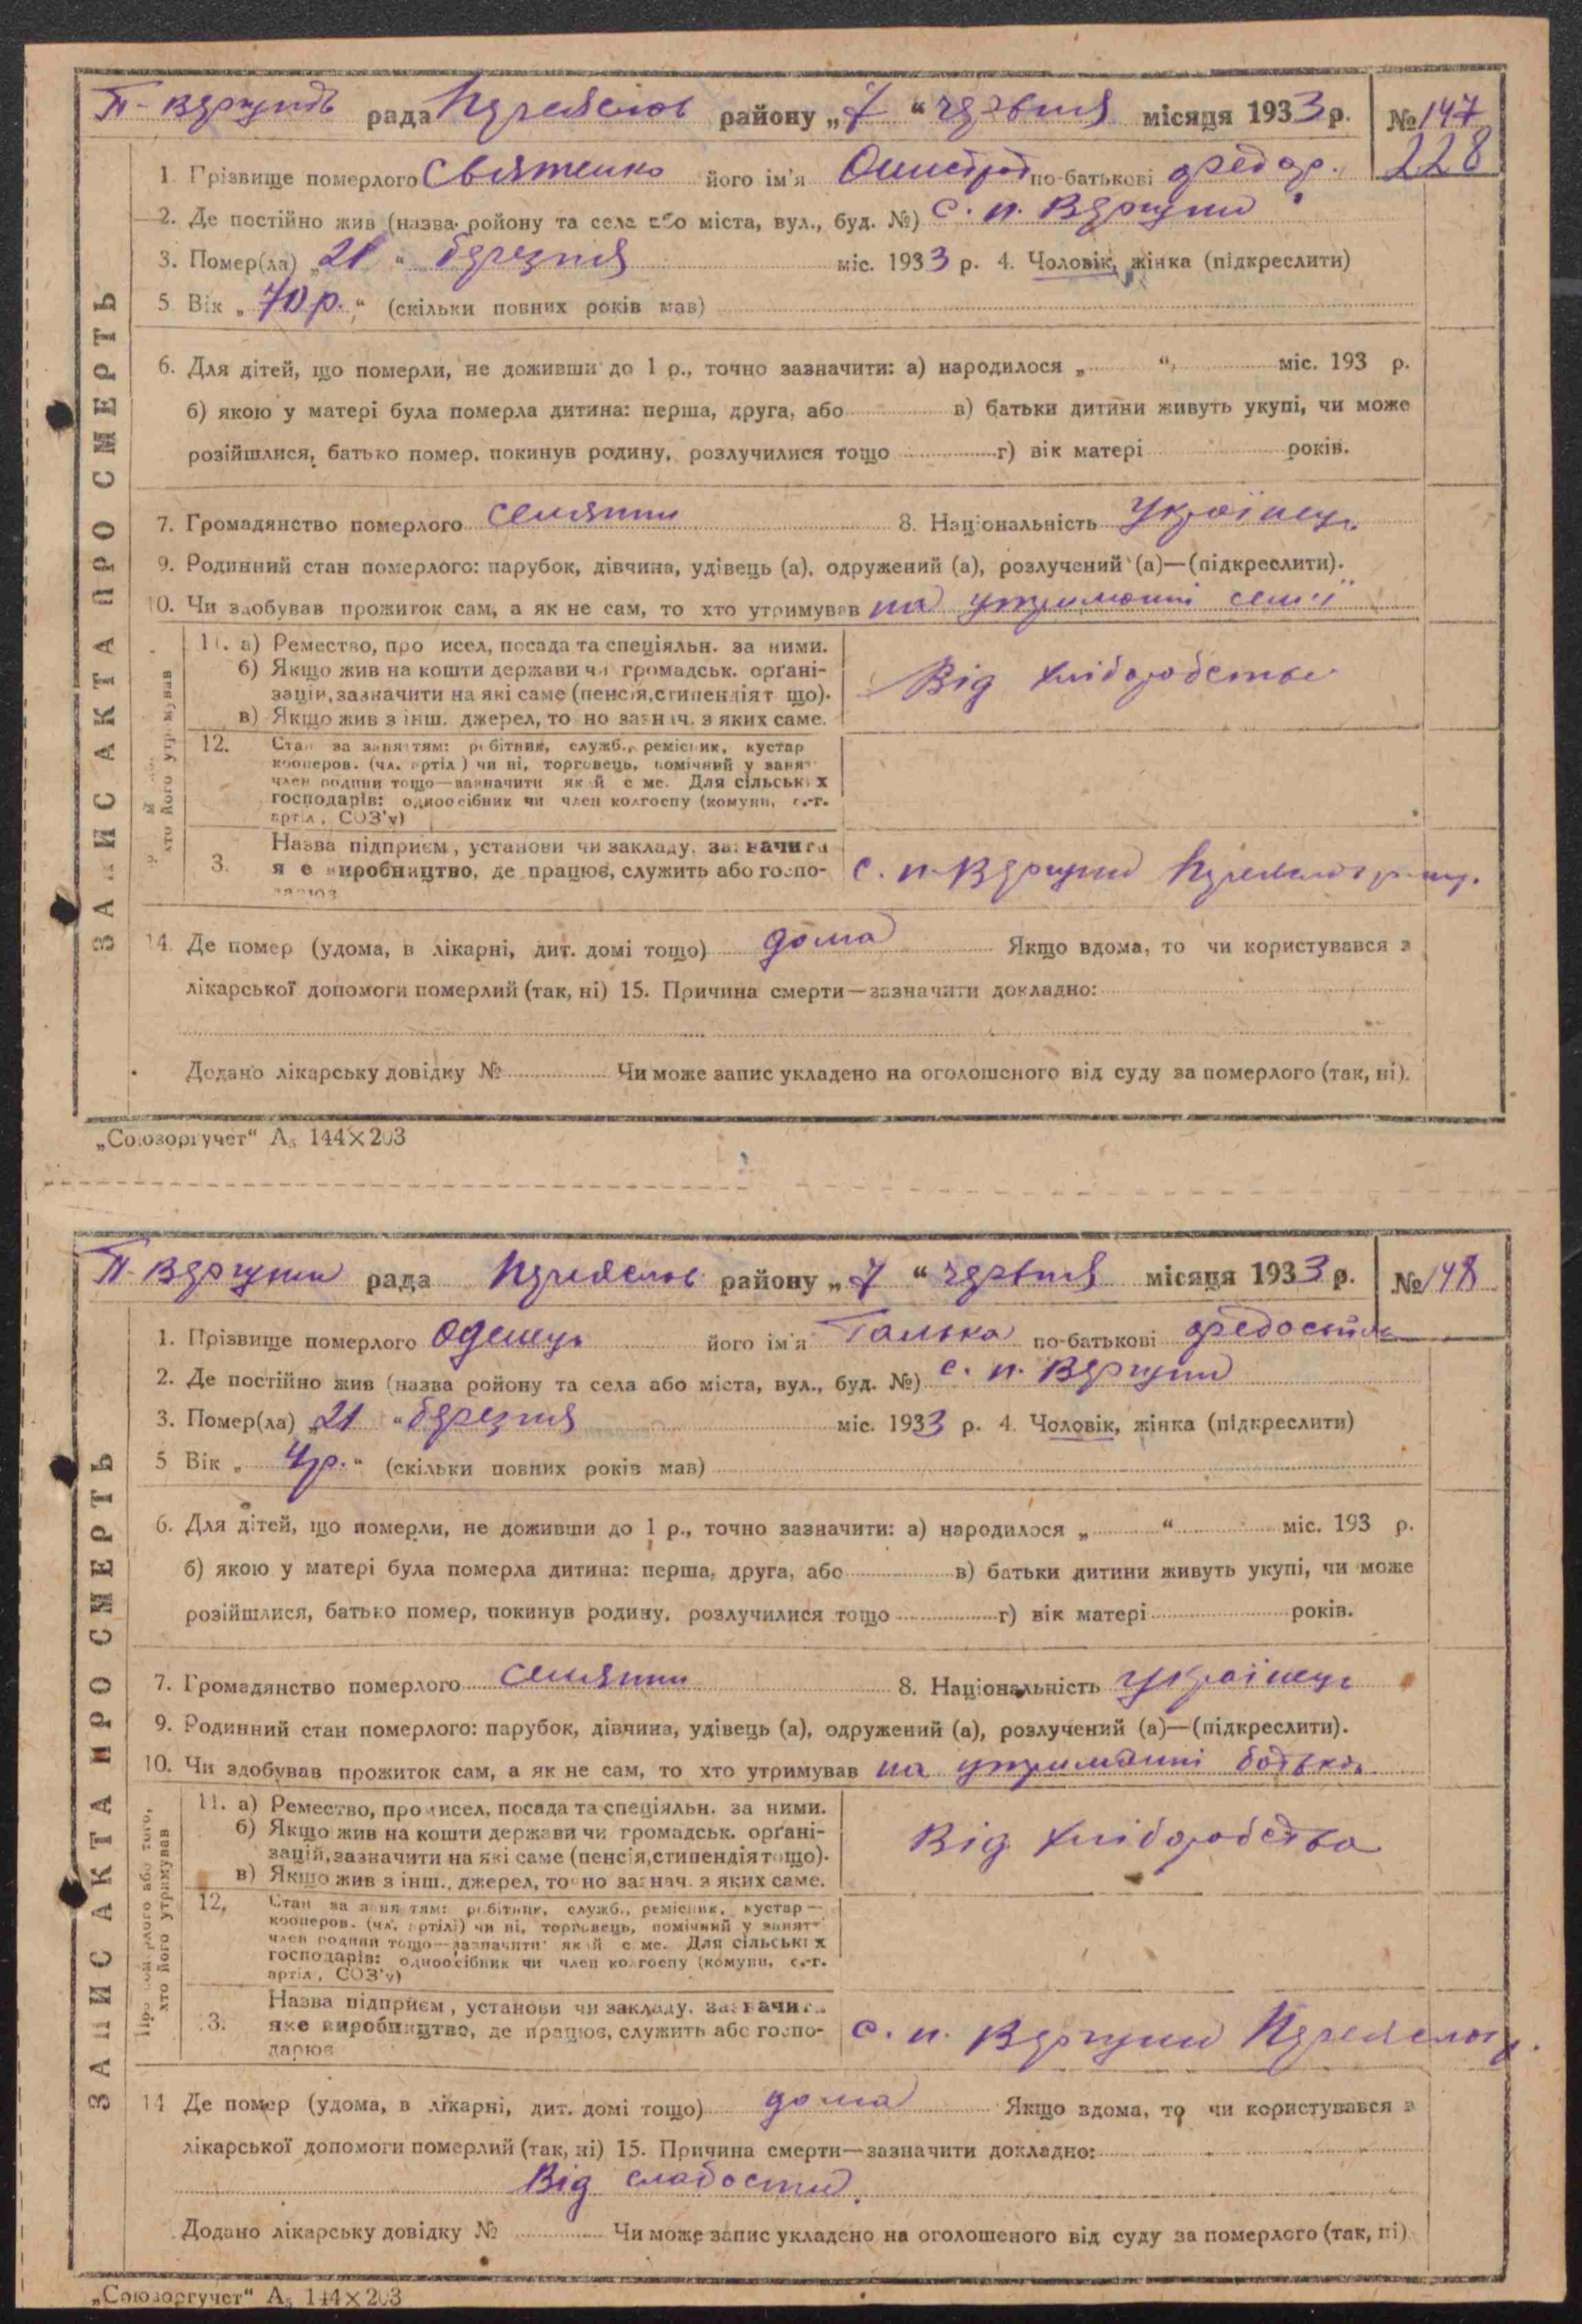 П-Вергунів рада Переяслов району „7“ червня місяця 1933 р. №147
228
1. Прізвище померлого Святенко його ім'я по-батькові Федор.
2. Де постійно жив (назва району та села або міста, вул., буд. №) с. п. Вергуни
3. Помер(ла) „21“ березня міс. 1933 р. 4. Чоловік, жінка (підкреслити)
5 Вік „70 р.“ (скільки повних років мав)
6. Для дітей, що померли, не доживши до 1 р., точно зазначити: а) народилося „ “, міс. 193 р.
б) якою у матері була померла дитина: перша, друга, або в) батьки дитини живуть укупі, чи може
розійшлися, батько помер, покинув родину, розлучилися тощо г) вік матері років.
7. Громадянство померлого селянин 8. Національність Українець
9. Родинний стан померлого: парубок, дівчина, удівець (а), одружений (а), розлучений (а)—(підкреслити).
10. Чи здобував прожиток сам, а як не сам, то хто утримував на утриманні семії
11. а) Ремество, про исел, посада та спеціяльн. за ними.
б) Якщо жив на кошти держави чи громадськ. орґані-
зацій, зазначити на які саме (пенсія, стипендія т що).
в) Якщо жив з інш. джерел, то но зазнач. з яких саме.
Від хліборобства
12. Стан за заняттям: робітник, служб., ремісник, кустар
кооперов. (чл. артіл ) чи ні, торговець, помічний у занят
член родини тощо—зазначити як й с ме. Для сільськ х
господарів: одноосібник чи член колгоспу (комуни, с.-г.
артіл , СОЗ'у)
3. Назва підприєм , установи чи закладу, зазначити
я е виробництво, де працює, служить або госпо-
дарює
с. п-Вергуни
14. Де помер (удома, в лікарні, дит. домі тощо) дома Якщо вдома, то чи користувався з
лікарської допомоги померлий (так, ні) 15. Причина смерти—зазначити докладно:
Додано лікарську довідку № Чи може запис укладено на оголошеного від суду за померлого (так, ні).
ЗАПИС АКТА ПРО СМЕРТЬ
„Союзоргучет“ А₅ 144×203
П-Вергуни рада Переяслов району „7“ червня місяця 1933 р. №148
1. Прізвище померлого Одешець його ім'я Галька по-батькові
2. Де постійно жив (назва району та села або міста, вул., буд. №) с. п. Вергуни
3. Помер(ла) „21“ березня міс. 1933 р. 4. Чоловік, жінка (підкреслити)
5 Вік „4 р.“ (скільки повних років мав)
6. Для дітей, що померли, не доживши до 1 р., точно зазначити: а) народилося „ “ міс. 193 р.
б) якою у матері була померла дитина: перша, друга, або в) батьки дитини живуть укупі, чи може
розійшлися, батько помер, покинув родину, розлучилися тощо г) вік матері років.
7. Громадянство померлого селянин 8. Національність українець
9. Родинний стан померлого: парубок, дівчина, удівець (а), одружений (а), розлучений (а)—(підкреслити).
10. Чи здобував прожиток сам, а як не сам, то хто утримував на утриманні батька
11. а) Ремество, промисел, посада та спеціяльн. за ними.
б) Якщо жив на кошти держави чи громадськ. орґані-
зацій, зазначити на які саме (пенсія, стипендія тощо).
в) Якщо жив з інш., джерел, то но зазнач. з яких саме.
Від хліборобства
12, Стан за заняттям: робітник, служб., ремісник, кустар—
кооперов. (чл. артілі) чи ні, торговець, помічний у занятт
член родини тощо—зазначити як й с ме. Для сільськ х
господарів: одноосібник чи член колгоспу (комуни, с.-г.
артіл , СОЗ'у)
3. Назва підприєм , установи чи закладу, зазначити
яке виробництво, де працює, служить або госпо-
дарює
с. п. Вергуни Переяслов р.
Про померлого або того, хто його утримував
14 Де помер (удома, в лікарні, дит. домі тощо) дома Якщо вдома, то чи користувався з
лікарської допомоги померлий (так, ні) 15. Причина смерти—зазначити докладно:
Від слабости.
Додано лікарську довідку № Чи може запис укладено на оголошеного від суду за померлого (так, ні)
ЗАПИС АКТА ПРО СМЕРТЬ
„Союзоргучет“ А₅ 144×203